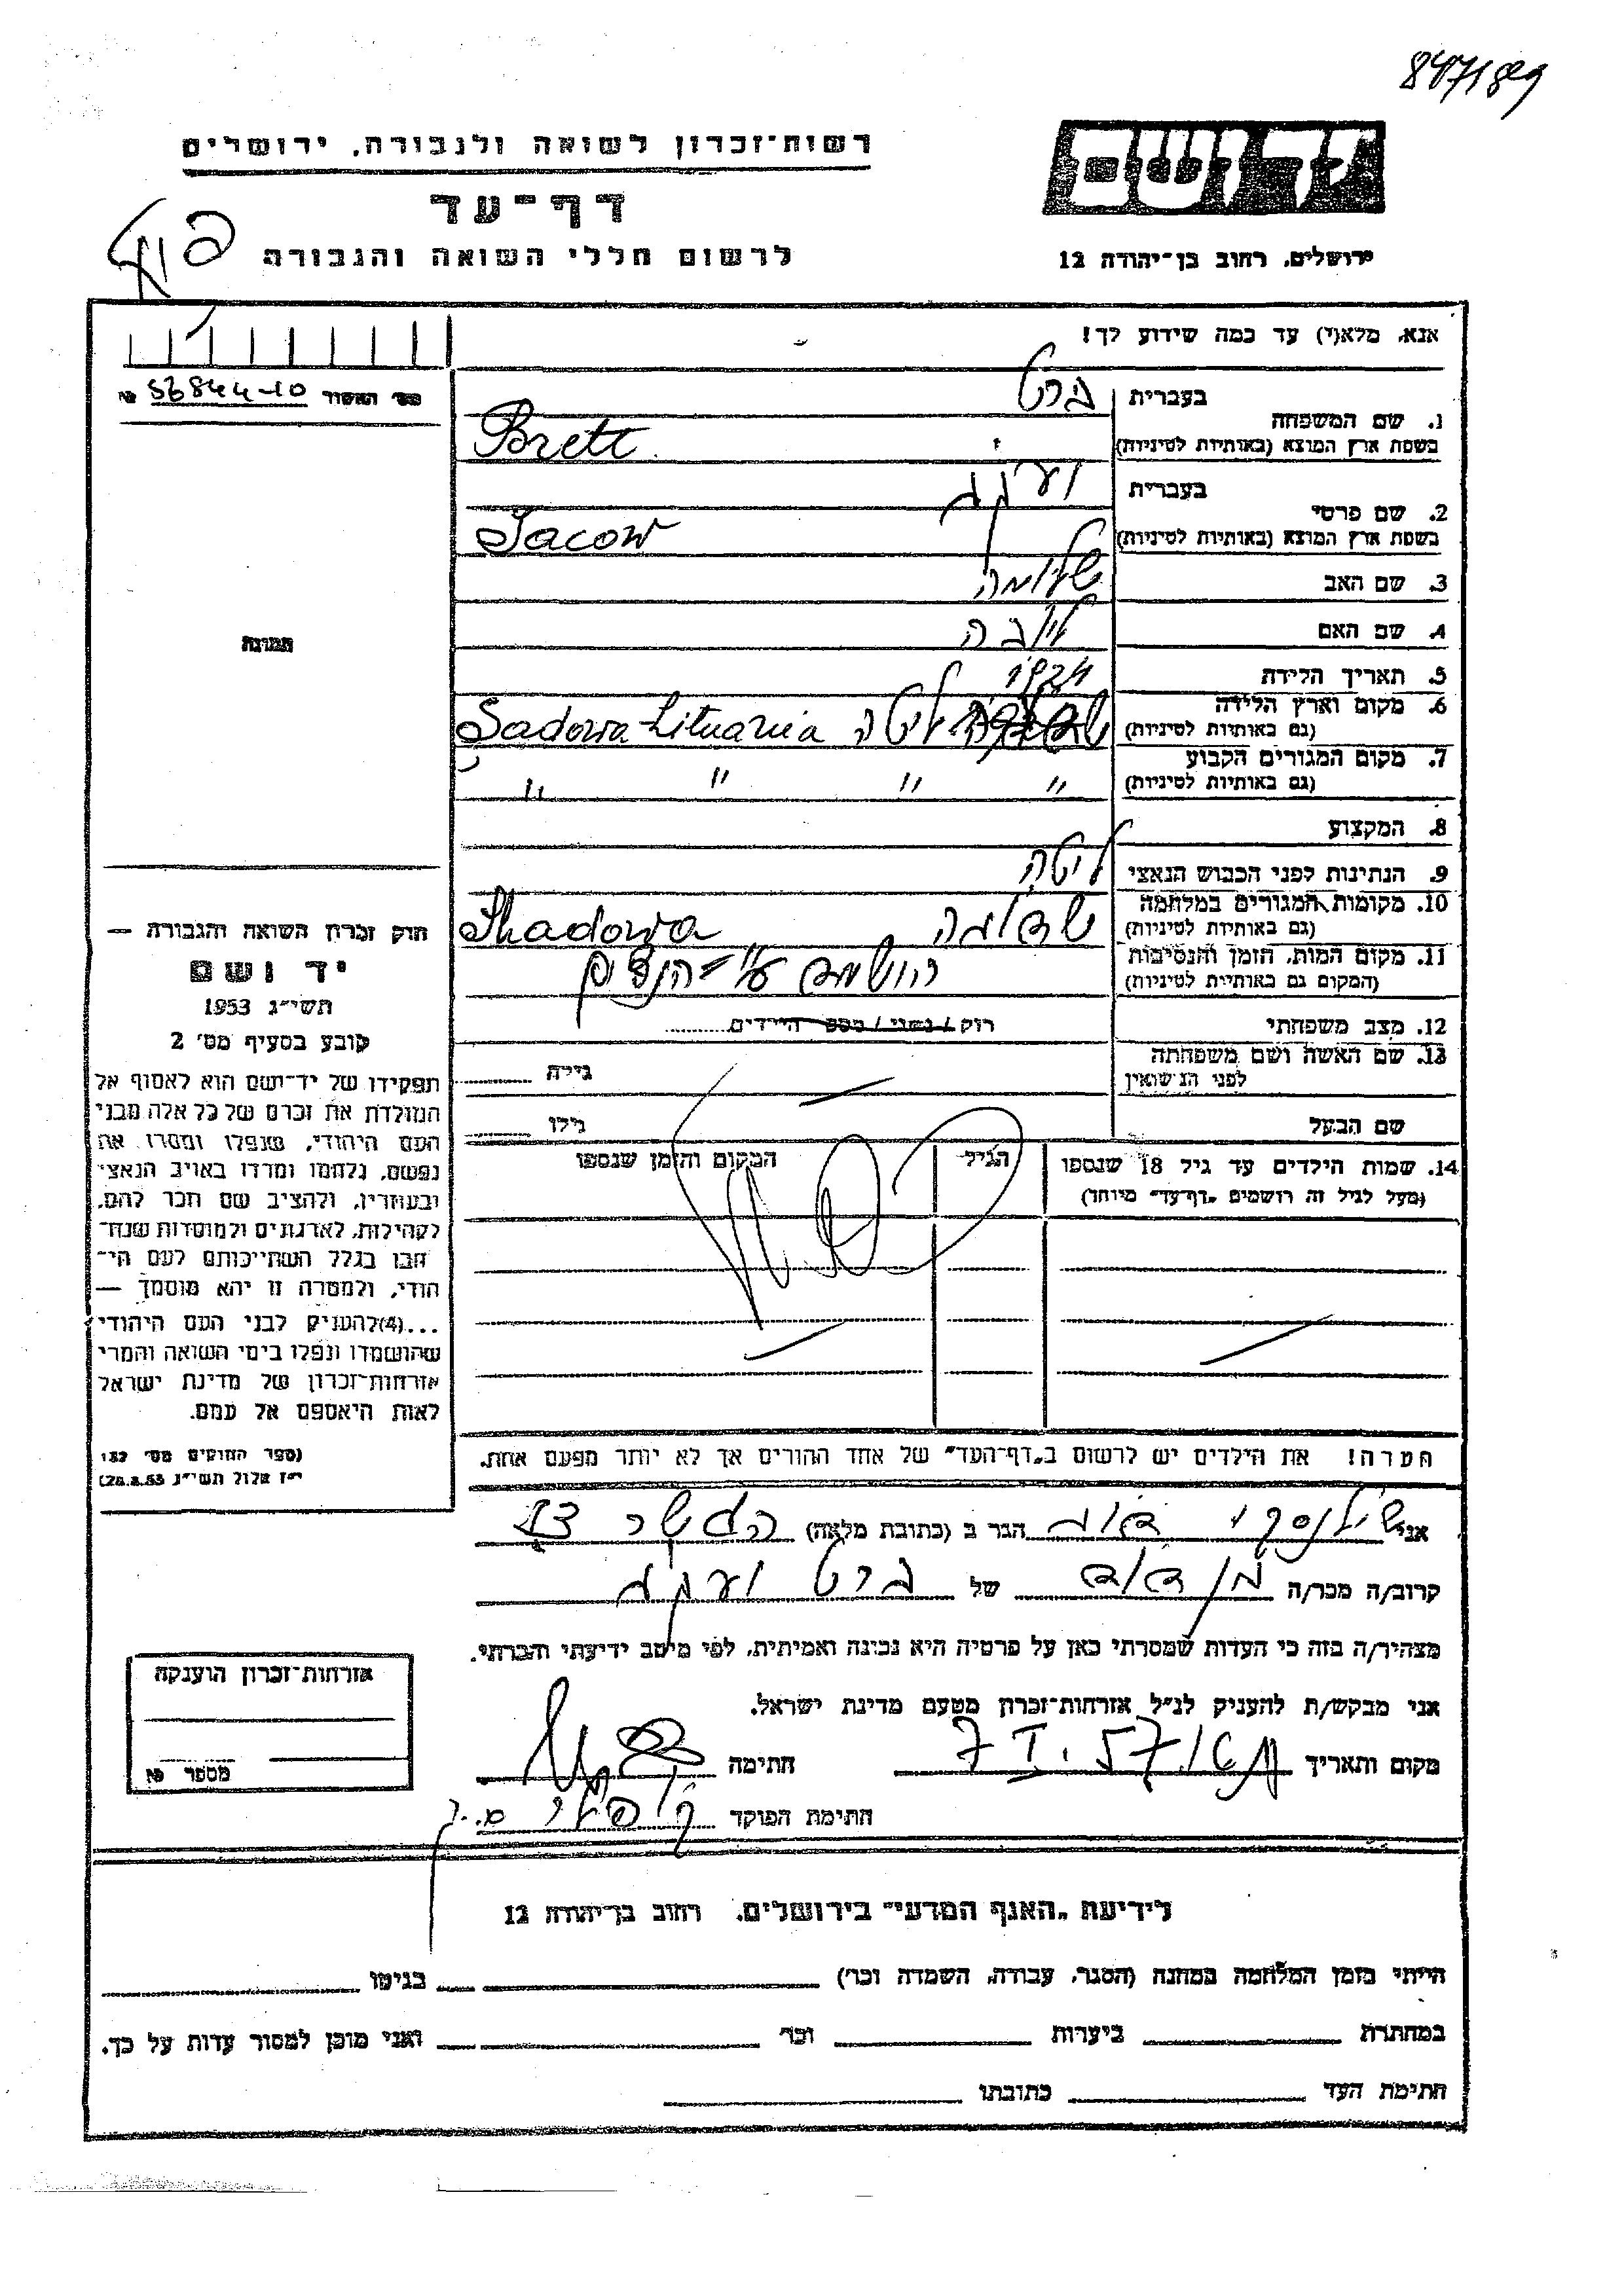 רשות־זכרון לשואה ולגבורה, ירושלים
דף־עד
לרשום חללי השואה והגבורה
ירושלים, רחוב בן־יהודה 12
אנא, מלא(י) עד כמה שידוע לך!
מס׳ האשור 56844-10 №
1. שם המשפחה
בעברית ברט
בשפת ארץ המוצא (באותיות לטיניות) Brett
2. שם פרטי
בעברית יעקב
בשפת ארץ המוצא (באותיות לטיניות) Jacow
3. שם האב שלומה
4. שם האם ליבה
5. תאריך הלידה 1924
6. מקום וארץ הלידה
(גם באותיות לטיניות) ליטה Sadowa Lituania
7. מקום המגורים הקבוע
(גם באותיות לטיניות) " " " "
8. המקצוע
9. הנתינות לפני הכבוש הנאצי ליטה
10. מקומות המגורים במלחמה
(גם באותיות לטיניות) Shadowa
11. מקום המות, הזמן והנסיבות
(המקום גם באותיות לטיניות) הושמד ע״י הנצים
12. מצב משפחתי רווק / נשוי / מספר הילדים
13. שם האשה ושם משפחתה
לפני הנישואין גילה
שם הבעל גילו
14. שמות הילדים עד גיל 18 שנספו הגיל המקום והזמן שנספו
(מעל לגיל זה רושמים „דף־עד״ מיוחד)
תמונה
חוק זכרון השואה והגבורה —
יד ושם
תשי״ג 1953
קובע בסעיף מס׳ 2
תפקידו של יד־ושם הוא לאסוף אל
המולדת את זכרם של כל אלה מבני
העם היהודי, שנפלו ומסרו את
נפשם, נלחמו ומרדו באויב הנאצי
ובעוזריו, ולהציב שם וזכר להם,
לקהילות, לארגונים ולמוסדות שנח־
רבו בגלל השתייכותם לעם הי־
הודי, ולמטרה זו יהא מוסמך —
...(4)להעניק לבני העם היהודי
שהושמדו ונפלו בימי השואה והמרי
אזרחות־זכרון של מדינת ישראל
לאות היאספם אל עמם.
(ספר החוקים מס׳ 132
י״ז אלול תשי״ג 28.8.53)
הערה! את הילדים יש לרשום ב„דף־העד״ של אחד ההורים אך לא יותר מפעם אחת.
אני הגר ב (כתובת מלאה)
קרוב/ה מכר/ה בן דוד של ברט יעקב
מצהיר/ה בזה כי העדות שמסרתי כאן על פרטיה היא נכונה ואמיתית, לפי מיטב ידיעתי והכרתי.
אני מבקש/ת להעניק לנ״ל אזרחות־זכרון מטעם מדינת ישראל.
מקום ותאריך 7 I. 57 חתימה
חתימת הפוקד
אזרחות־זכרון הוענקה
מספר №
לידיעת „האגף המדעי״ בירושלים, רחוב בן־יהודה 12
הייתי בזמן המלחמה במחנה (הסגר, עבודה, השמדה וכו׳) בגיטו
במחתרת ביערות וכו׳ ואני מוכן למסור עדות על כך.
חתימת העד כתובתו